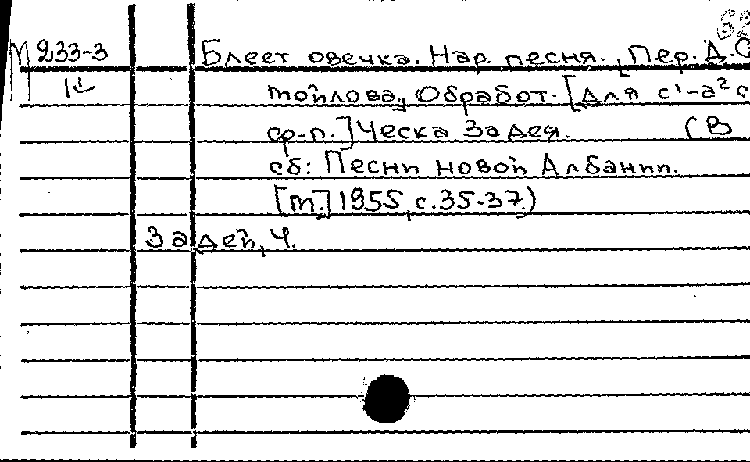 М 233-3 Блеет овечка. Нар. песня. Пер. А. С
тойлова, Обработ. [для с¹-а² с
ср-п.] Ческа Задея. (В
сб: Песни новой Албании.
[М.] 1955, с. 35-37)
Задей, Ч.